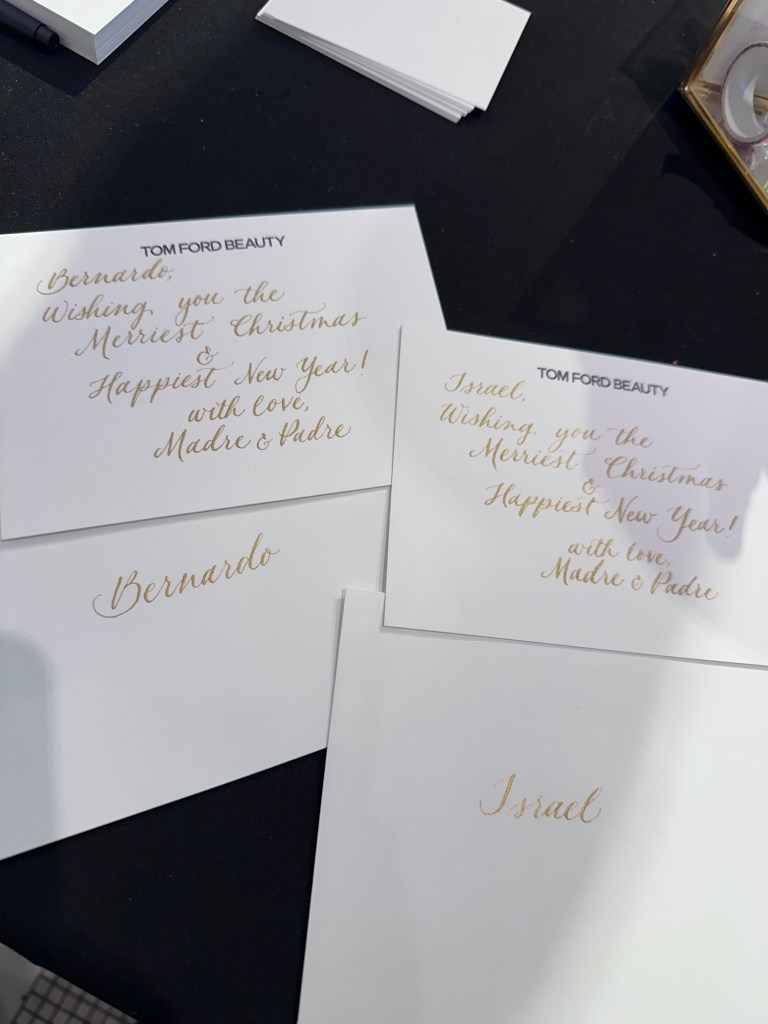 TOM FORD BEAUTY
Bernardo,
Wishing you the
Merriest Christmas
&
Happiest New Year!
with love,
Madre & Padre
Bernardo
TOM FORD BEAUTY
Israel,
Wishing you the
Merriest Christmas
&
Happiest New Year!
with love,
Madre & Padre
Israel